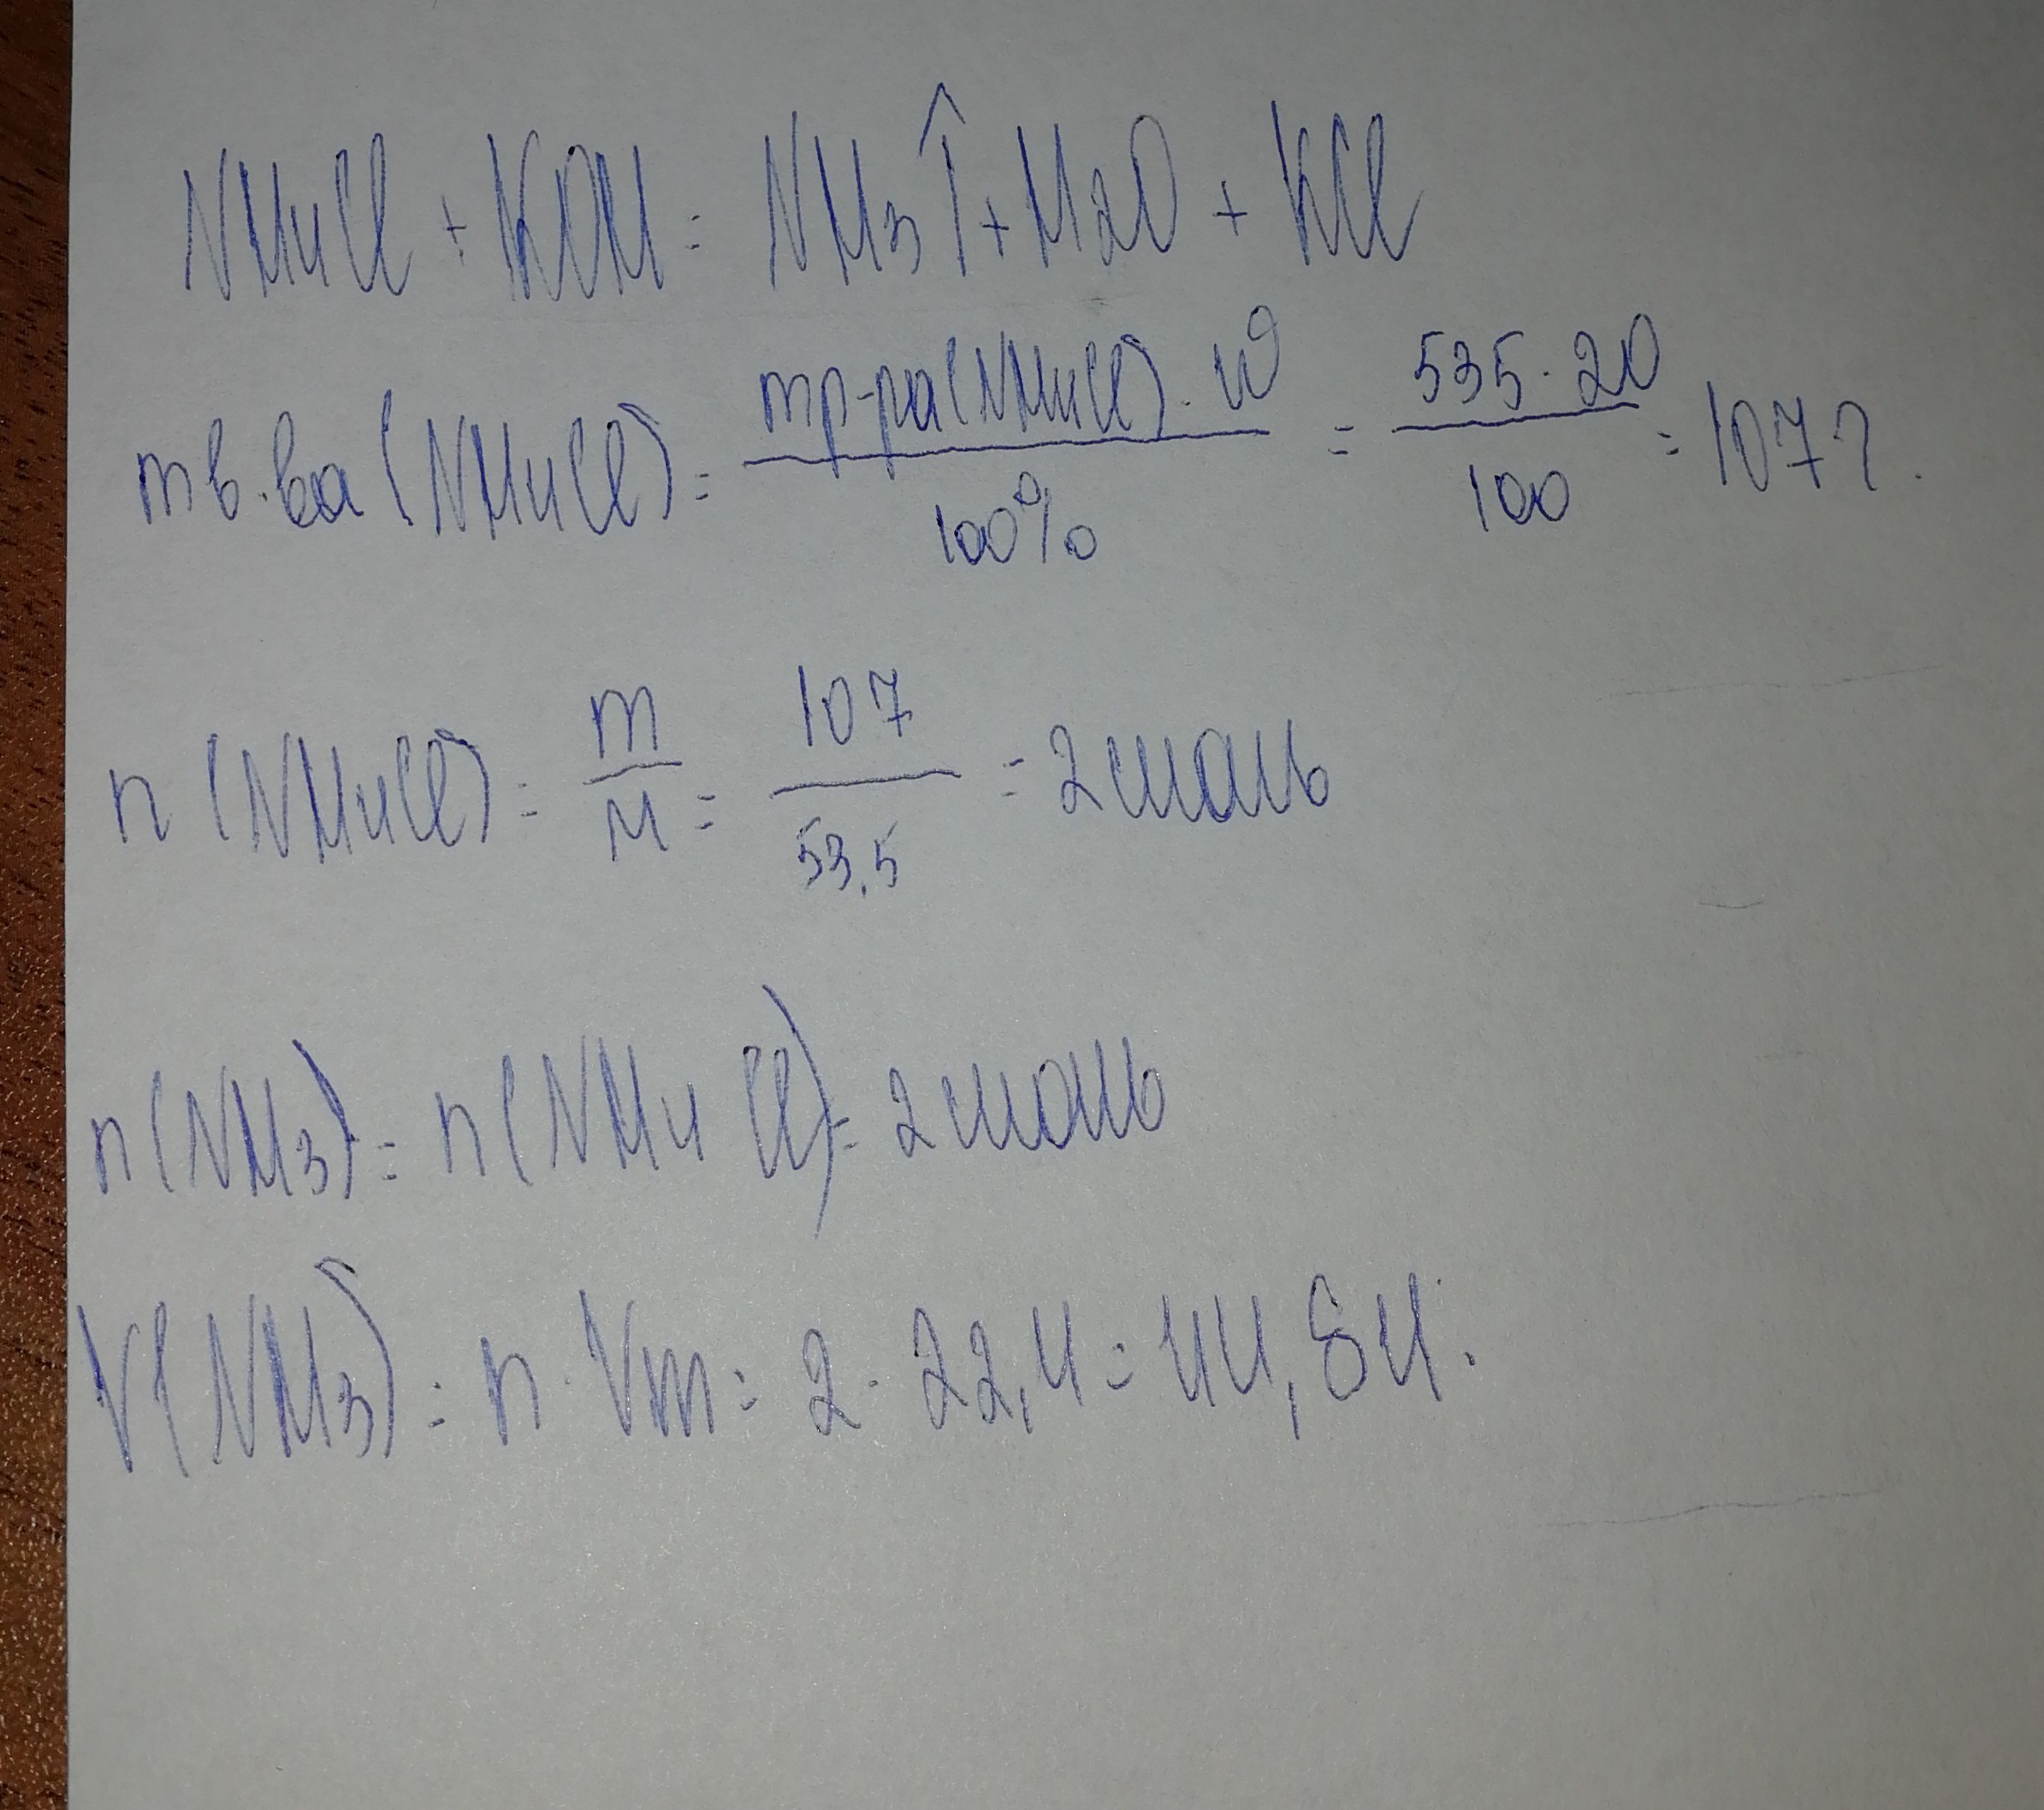 NH4Cl + KOH = NH3↑ + H2O + KCl
mв-ва (NH4Cl) = mр-ра(NH4Cl) · w / 100% = 535 · 20 / 100 = 107 г.
n (NH4Cl) = m / M = 107 / 53,5 = 2 моль
n(NH3) = n(NH4Cl) = 2 моль
V(NH3) = n · Vm = 2 · 22,4 = 44,8 л.